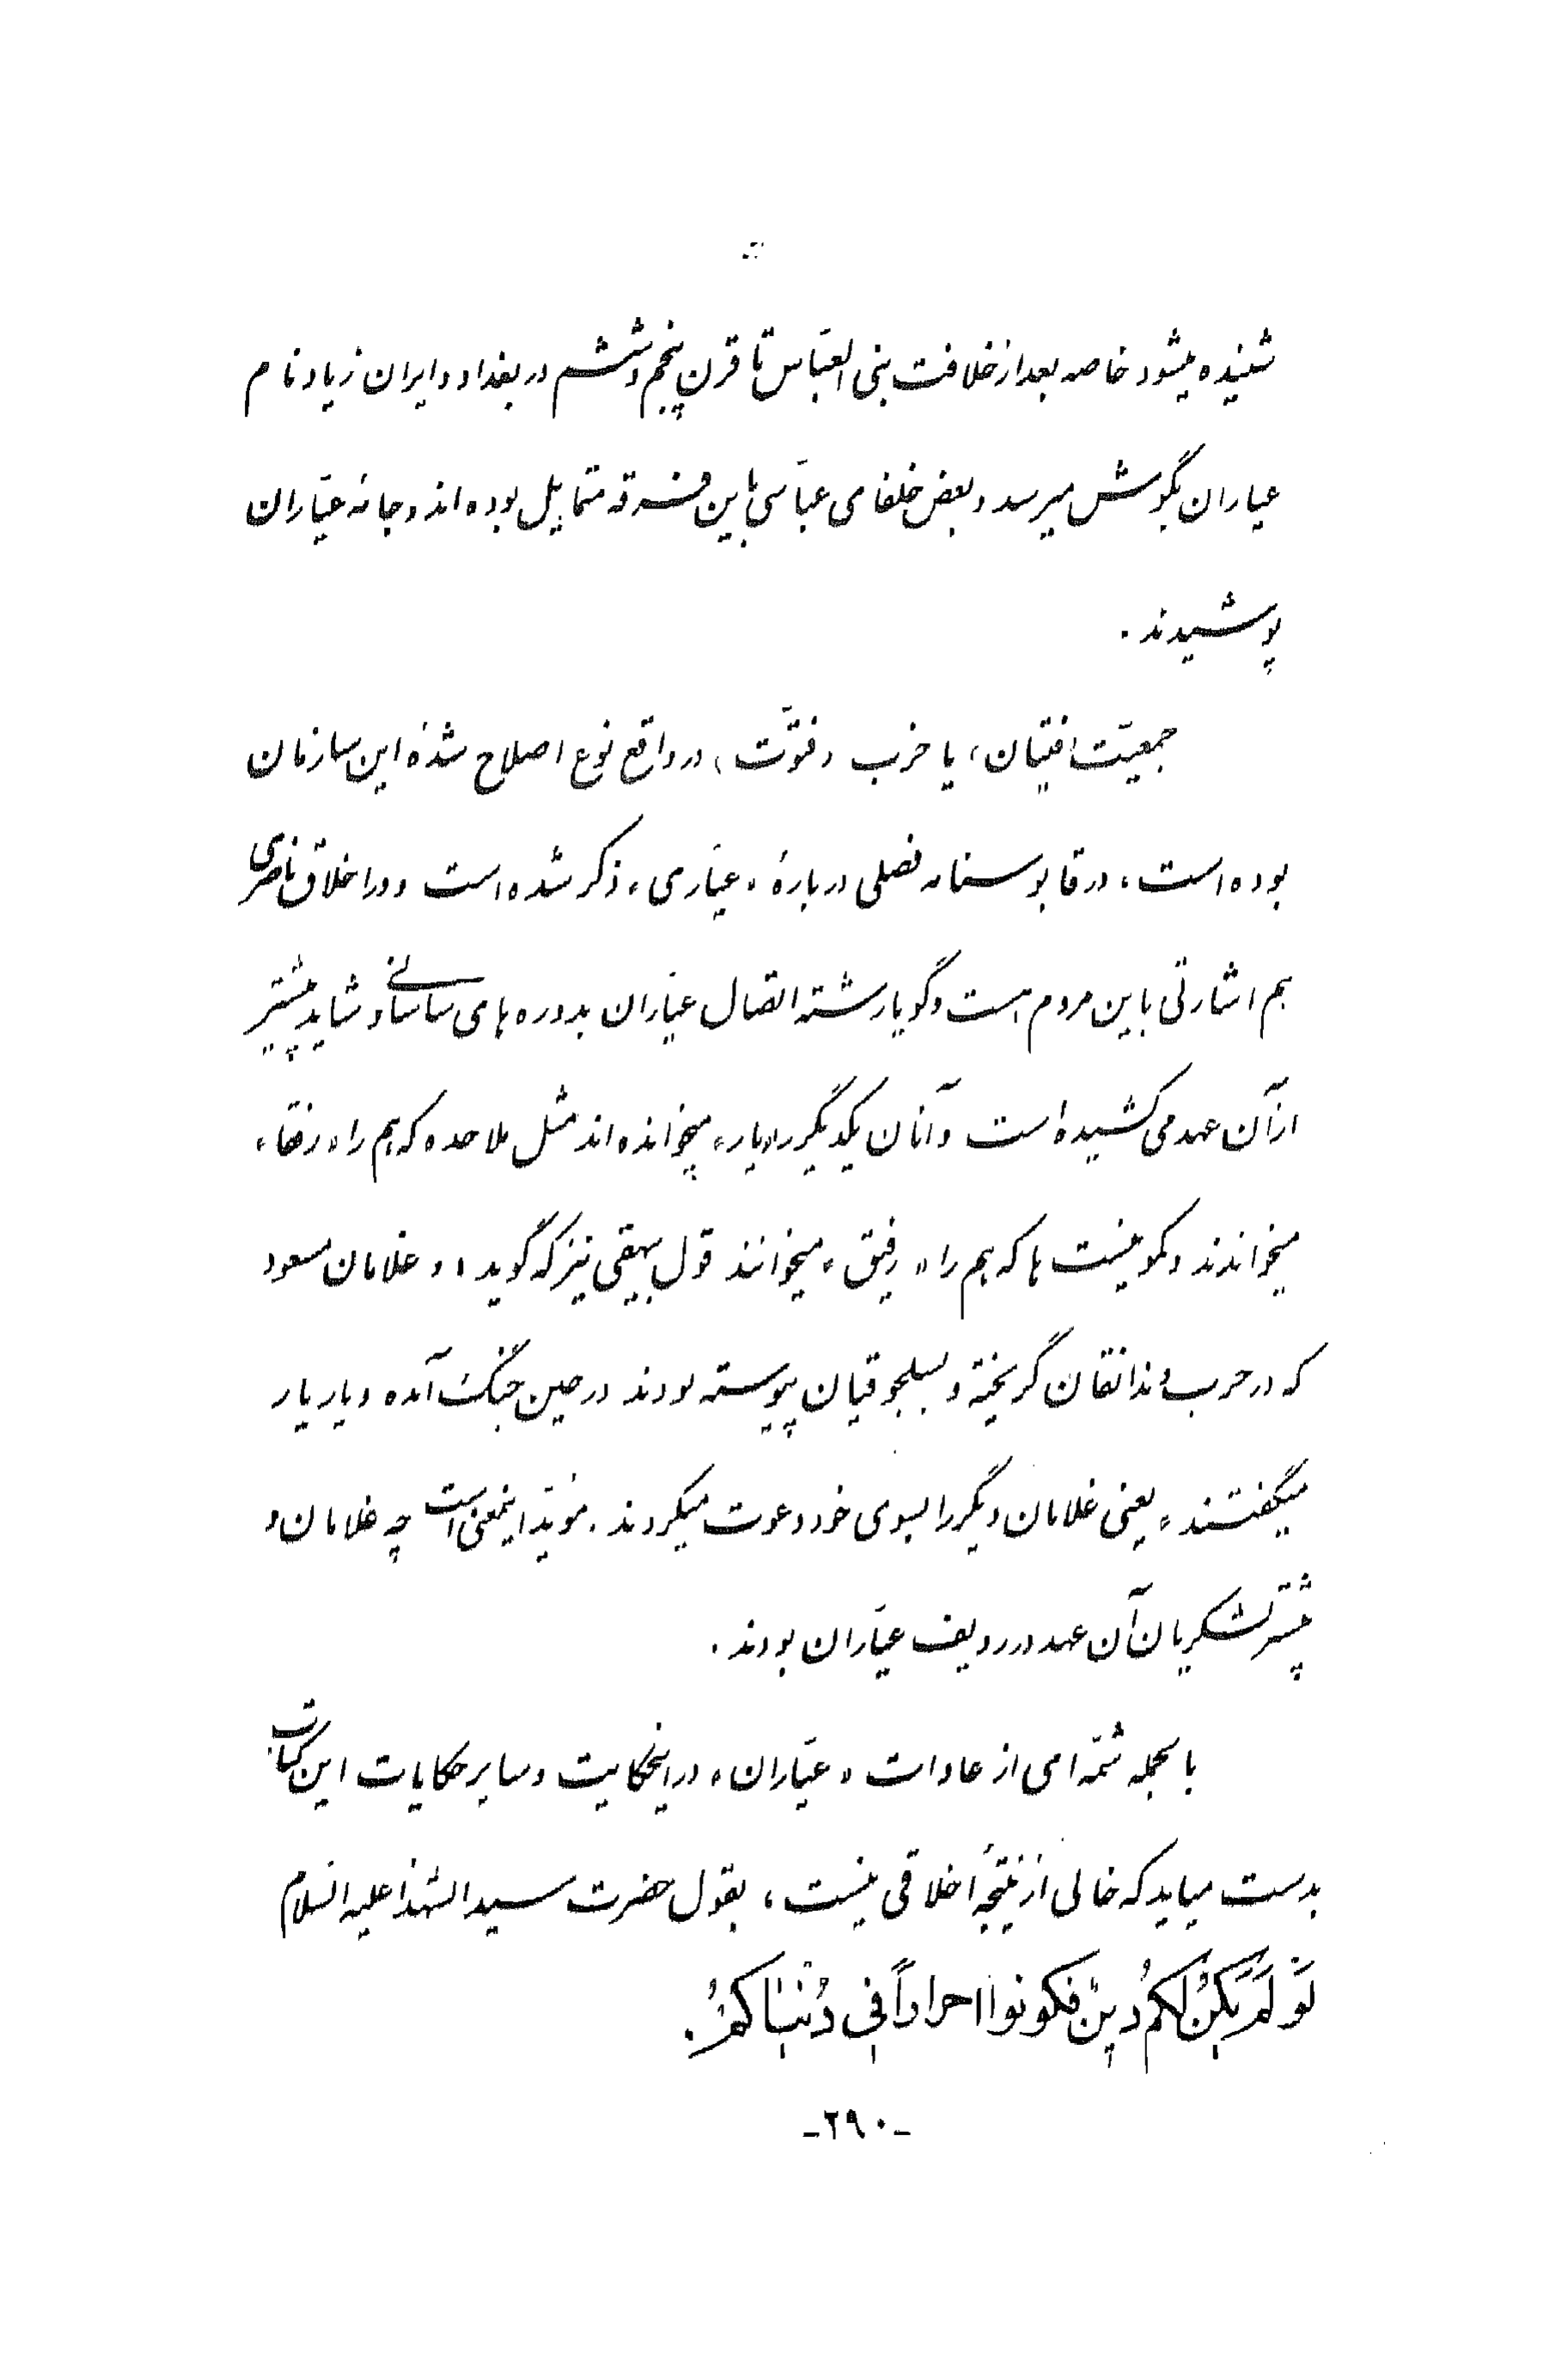 شنیده میشود خاصه بعد از خلافت بنی العبّاس تا قرن پنجم و ششم در بغداد و ایران زیاد نام
عیاران بگوش میرسد و بعض خلفای عبّاسی باین فرقه متمایل بوده‌اند و جامهٔ عیّاران
پوشیدند .
جمعیّت «فتیان» یا حزب «فتوّت» در واقع نوع اصلاح شدهٔ این سازمان
بوده است ، در قابوسنامه فصلی دربارهٔ «عیّاری» ذکر شده است و در اخلاق ناصری
هم اشارتی باین مردم هست و گویا رشته اتصال عیّاران بدوره‌های ساسانی و شاید پیشتر
از آن عهد می کشیده است و آنان یکدیگر را «یار» میخوانده‌اند مثل ملاحده که هم را «رفقا»
میخواندند و کمونیست ها که هم را «رفیق» میخوانند قول بیهقی نیز که گوید «و غلامان مسعود
که در حرب دندانقان گریخته و بسلجوقیان پیوسته بودند در حین جنگ آمده و یار یار
میگفتند» یعنی غلامان دیگر را بسوی خود دعوت میکردند . مؤید اینمعنی است چه غلامان و
بیشتر لشکریان آن عهد در ردیف عیّاران بودند .
بالجمله شمّه‌ای از عادات «عیّاران» در اینحکایت و سایر حکایات این کتاب
بدست میاید که خالی از نتیجهٔ اخلاقی نیست ، بقول حضرت سید الشهدا علیه السلام
لَوْ لَمْ یَکُنْ لَکُمْ دینٌ فکونوا احراراً فی دُنْیاکُمْ .
-۲۹۰-